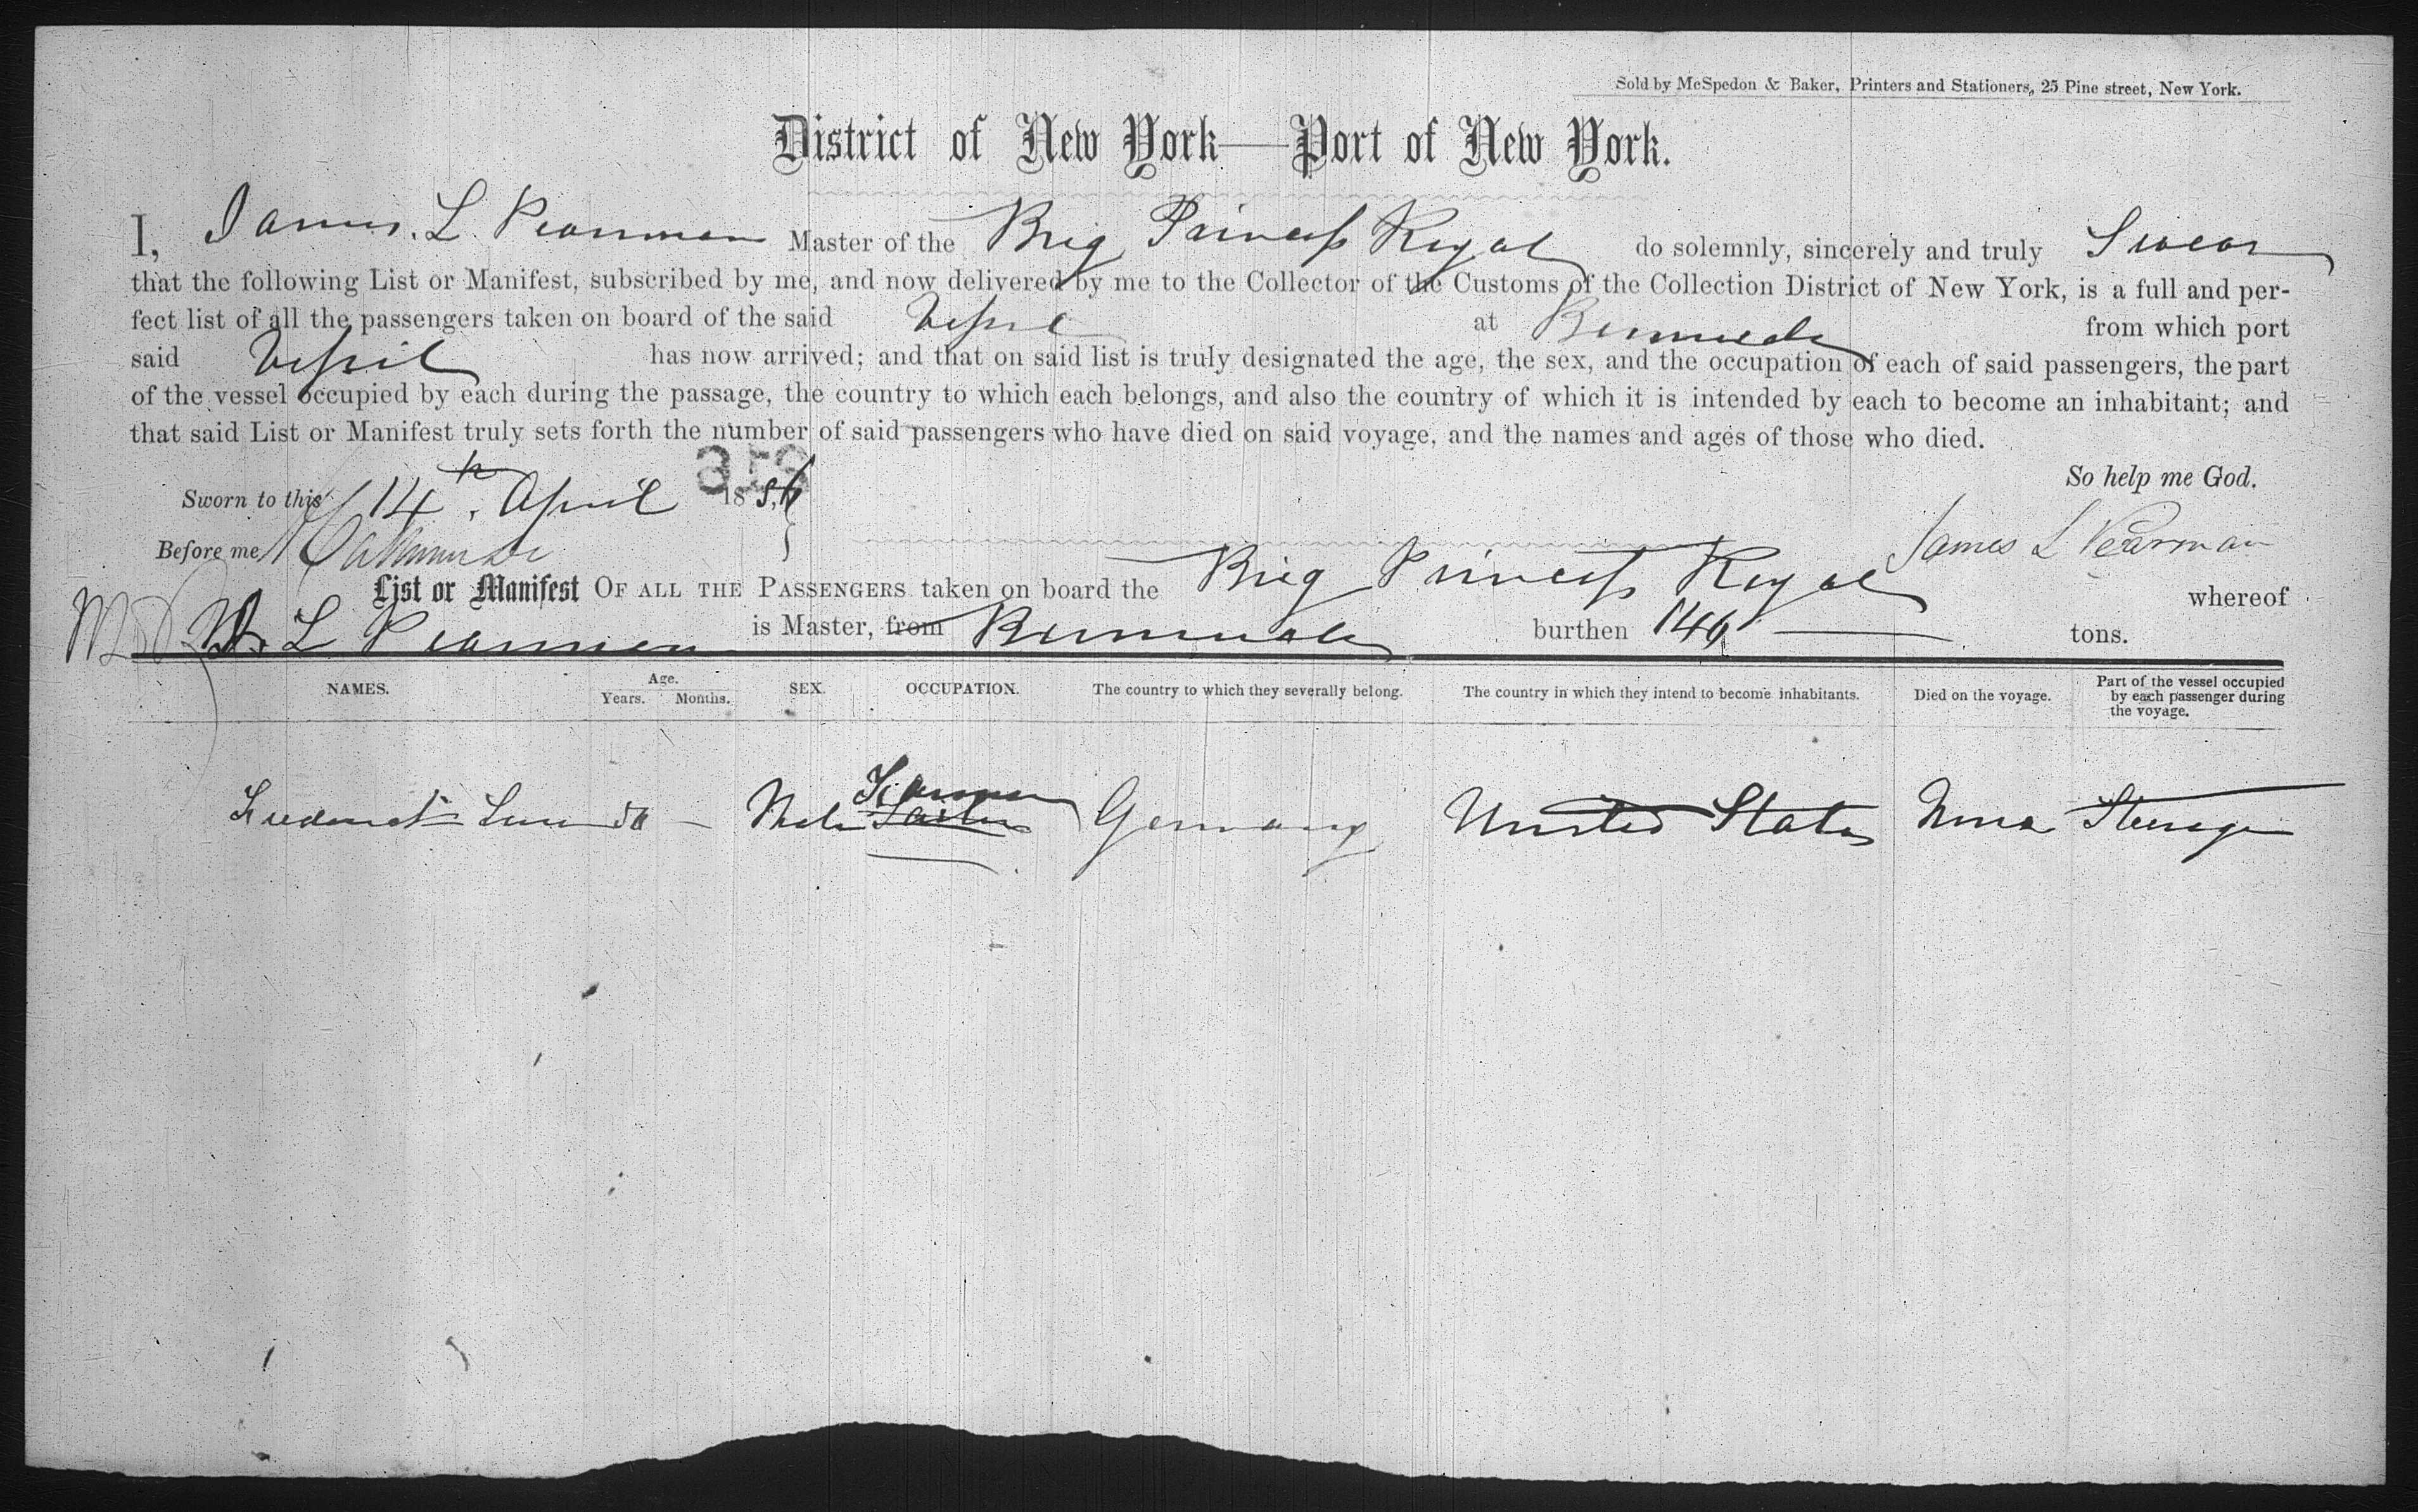 Sold by McSpedon & Baker, Printers and Stationers, 25 Pine street, New York.
District of New York—Port of New York.
I, James. L. Pearman Master of the Brig Princess Royal do solemnly, sincerely and truly Swear
that the following List or Manifest, subscribed by me, and now delivered by me to the Collector of the Customs of the Collection District of New York, is a full and per-
fect list of all the passengers taken on board of the said Vessel at Bermuda from which port
said Vessel has now arrived; and that on said list is truly designated the age, the sex, and the occupation of each of said passengers, the part
of the vessel occupied by each during the passage, the country to which each belongs, and also the country of which it is intended by each to become an inhabitant; and
that said List or Manifest truly sets forth the number of said passengers who have died on said voyage, and the names and ages of those who died.
So help me God.
Sworn to this 14th. April 1856
Before me
James L Pearman
List or Manifest OF ALL THE PASSENGERS taken on board the Brig Princess Royal whereof
L Pearman is Master, from Bermuda burthen 146 tons.
NAMES. Age. Years. Months. SEX. OCCUPATION. The country to which they severally belong. The country in which they intend to become inhabitants. Died on the voyage. Part of the vessel occupied by each passenger during the voyage.
Frederick — Male Germany United States None Steerage